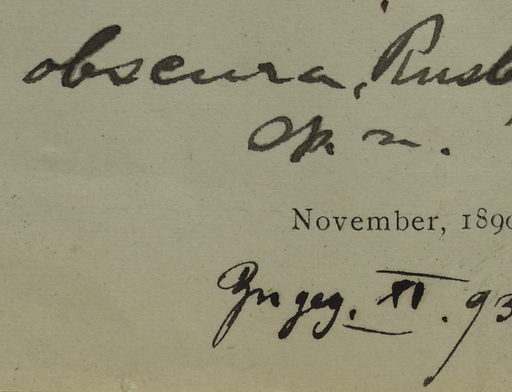 obscura, Rusb
sp. n.
November, 1890
XI. 93